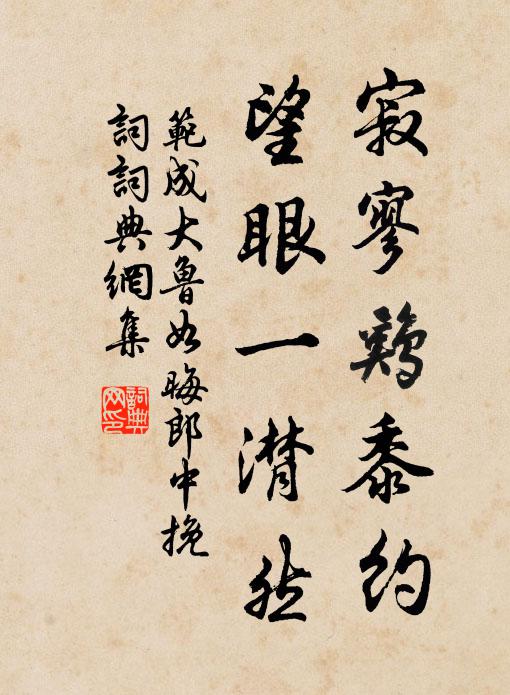 寂寥鷄黍約
望眼一潸然
範成大魯如晦郎中挽
詞詞典網集
詞典
网印